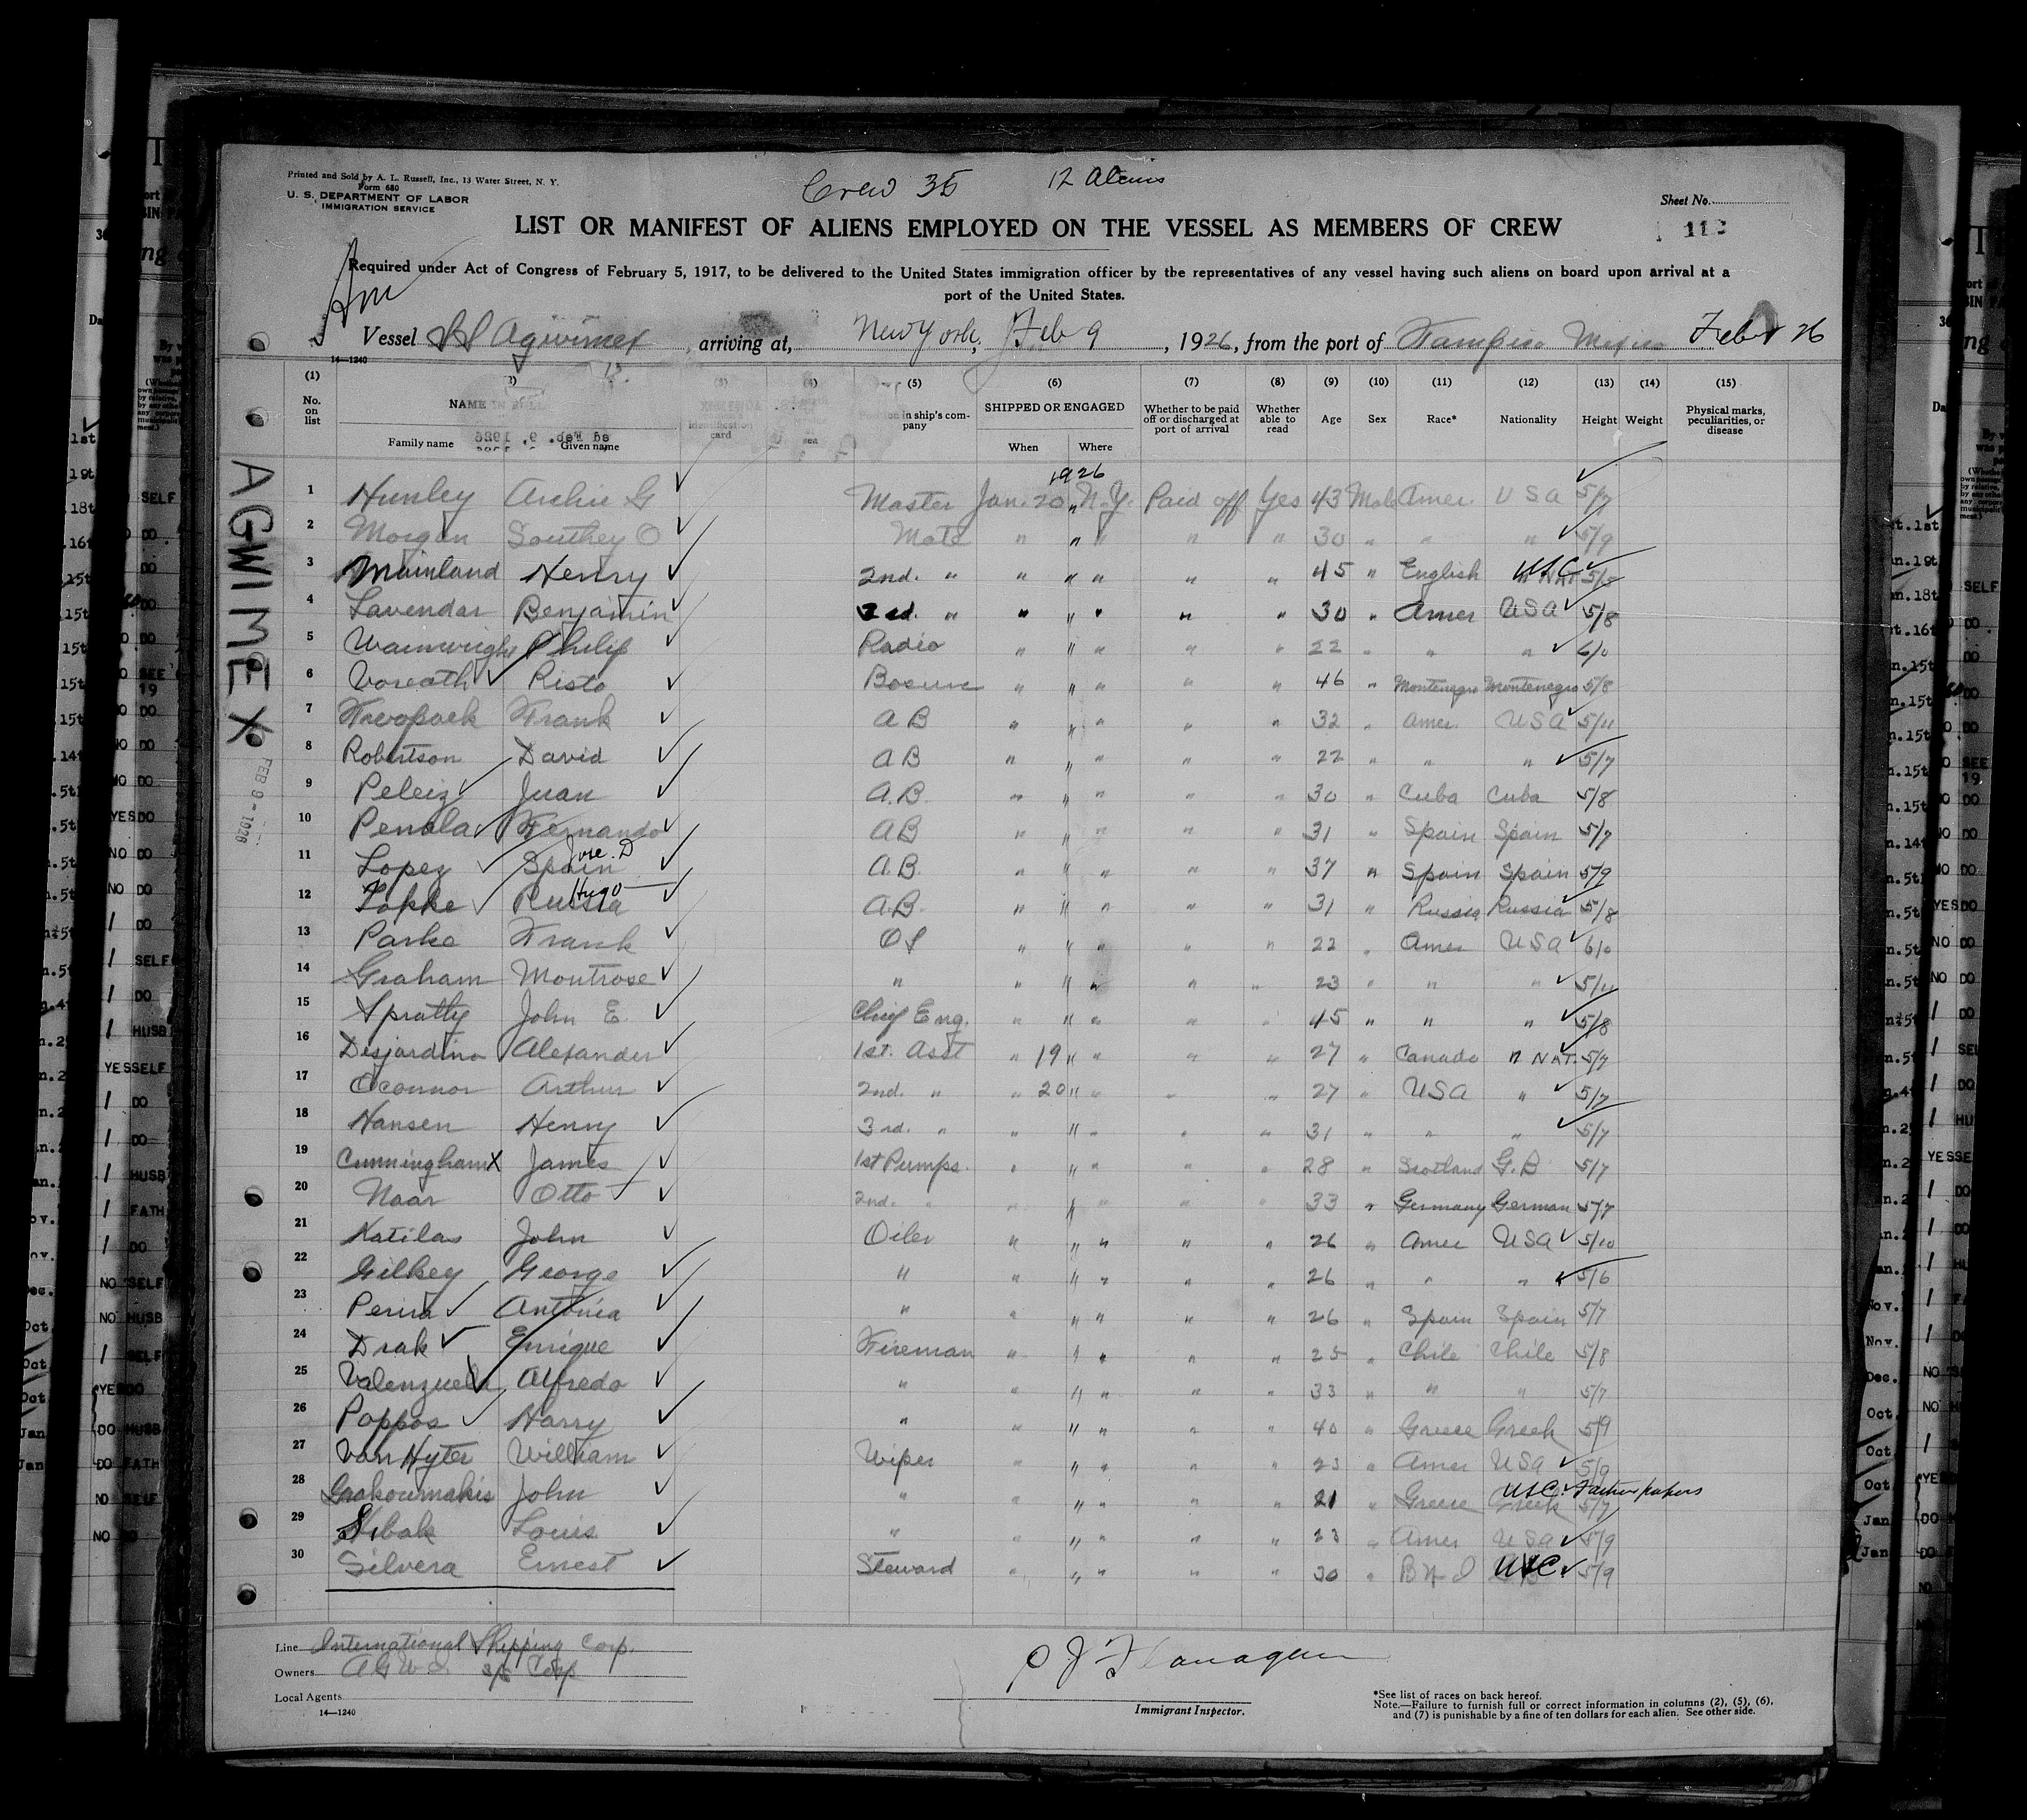 Printed and Sold by A. L. Russell, Inc., 13 Water Street, N. Y.
Form 680
U. S. DEPARTMENT OF LABOR
IMMIGRATION SERVICE
Crew 35 12 Aliens
Sheet No.
LIST OR MANIFEST OF ALIENS EMPLOYED ON THE VESSEL AS MEMBERS OF CREW
Required under Act of Congress of February 5, 1917, to be delivered to the United States immigration officer by the representatives of any vessel having such aliens on board upon arrival at a
port of the United States.
Am
Vessel SS Agwimex, arriving at, New York, Feb 9, 1926, from the port of Tampico Mexico Feb 26
14—1240
(1) (2) (3) (4) (5) (6) (7) (8) (9) (10) (11) (12) (13) (14) (15)
No. on list NAME IN Family name Given name identification card sea in ship's company SHIPPED OR ENGAGED When Where Whether to be paid off or discharged at port of arrival Whether able to read Age Sex Race* Nationality Height Weight Physical marks, peculiarities, or disease
AGWIMEX
FEB 9 - 1926
1926
1 Hunley Archie G Master Jan. 20 " N.Y. Paid off Yes 43 Male Amer. USA 5/7
2 Morgan Southey O Mate " " " " " 30 " " " 5/9
3 Mainland Henry 2nd. " " " " " " 45 " English USC NAT.
4 Lavendar Benjamin 3rd. " " " " " " 30 " Amer USA 5/8
5 Wainwright Philip Radio " " " " " 22 " " " 6/0
6 Risto " " " " " 46 " Montenegro Montenegro 5/8
7 Frank AB " " " " " 32 " Amer. USA 5/11
8 Robertson David AB " " " " " 22 " " " 5/7
9 Peleiz Juan A.B. " " " " " 30 " Cuba Cuba 5/8
10 Penala Fernando AB " " " " " 31 " Spain Spain 5/7
11 Lopez Spain Jose. D A.B. " " " " " 37 " Spain Spain 5/9
12 Russia Hugo A.B. " " " " " 31 " Russia Russia 5/8
13 Parke Frank OS " " " " " 22 " Amer USA 6/0
14 Graham Montrose " " " " " " 23 " " " 5/11
15 Spratty John E. Chief Eng. " " " " " 45 " " " 5/8
16 Desjardins Alexander 1st. Asst " 19 " " " " 27 " Canada " NAT. 5/7
17 Oconnor Arthur 2nd. " " 20 " " " " 27 " USA " 5/7
18 Hansen Henry 3rd. " " " " " " 31 " " " 5/7
19 Cunningham X James 1st Pumps. " " " " " 28 " Scotland G.B 5/7
20 Naar Otto 2nd. " " " " " " 33 " Germany German 5/7
21 Katilas John Oiler " " " " " 26 " Amer USA 5/10
22 Gilkey George " " " " " " 26 " " " 5/6
23 Antonia " " " " " " 26 " Spain Spain 5/7
24 Drak Enrique Fireman " " " " " 25 " Chile Chile 5/8
25 Valenzuela Alfredo " " " " " " 33 " " " 5/7
26 Pappas Harry " " " " " " 40 " Greece Greek 5/9
27 Van Hyter William Wiper " " " " " 23 " Amer USA 5/9
28 Grakoumakis John " " " " " " 21 " Greece Greek USC. Father papers 5/7
29 Louis " " " " " " 23 " Amer USA 5/9
30 Silvera Ernest Steward " " " " " 30 " B W I USC 5/9
Line International Shipping Corp.
Owners A G W I. S/S Corp
Local Agents
14—1240
P J Flanagan
Immigrant Inspector.
*See list of races on back hereof.
Note.—Failure to furnish full or correct information in columns (2), (5), (6),
and (7) is punishable by a fine of ten dollars for each alien. See other side.